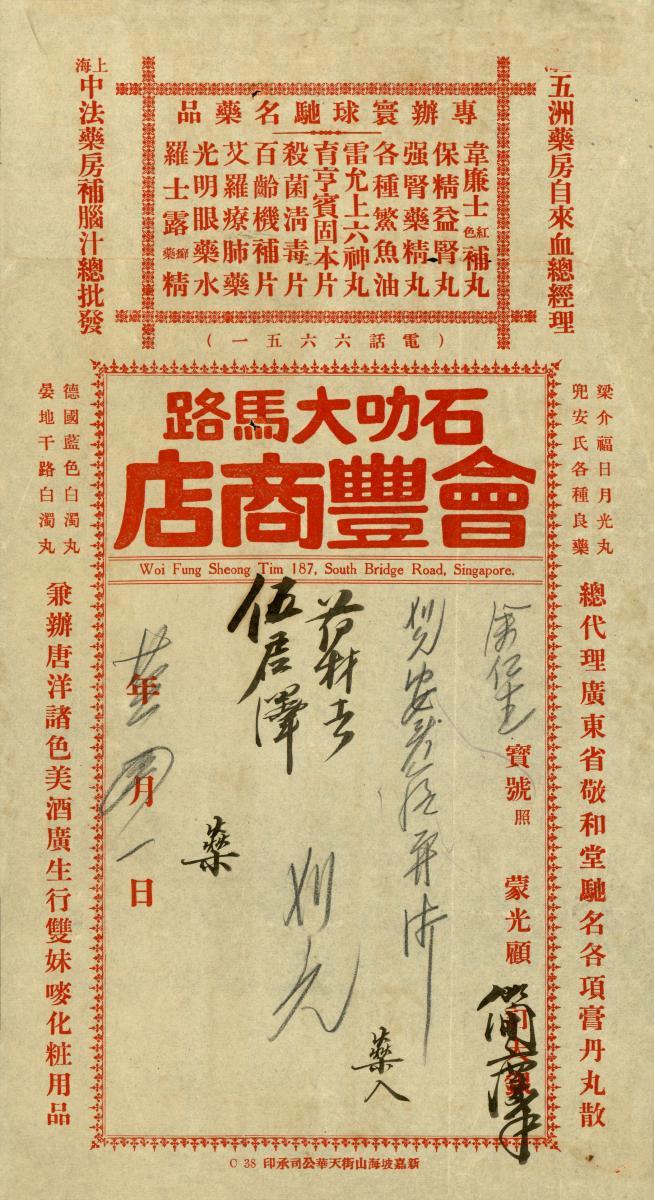 上海
五洲藥房自來血總經理
專辦寰球馳名藥品
韋廉士紅色補丸
保精益腎丸
强腎藥精丸
各種鰵魚油
雷允上六神丸
育亨賓固本片
殺菌淸毒片
百齡機補片
艾羅療肺藥
光明眼藥水
羅士露癬藥精
上海
中法藥房補腦汁總批發
（電話六六五一）
梁介福日月光丸
兜安氏各種良藥
總代理廣東省敬和堂馳名各項膏丹丸散
石叻大馬路
會豐商店
Woi Fung Sheong Tim 187, South Bridge Road, Singapore.
余仁生
寶號照
蒙光顧
藥入
伍君澤
藥
年月一日
德國藍色白濁丸
晏地干路白濁丸
兼辦唐洋諸色美酒廣生行雙妹嘜化粧用品
新嘉坡海山街天華公司承印
C 38